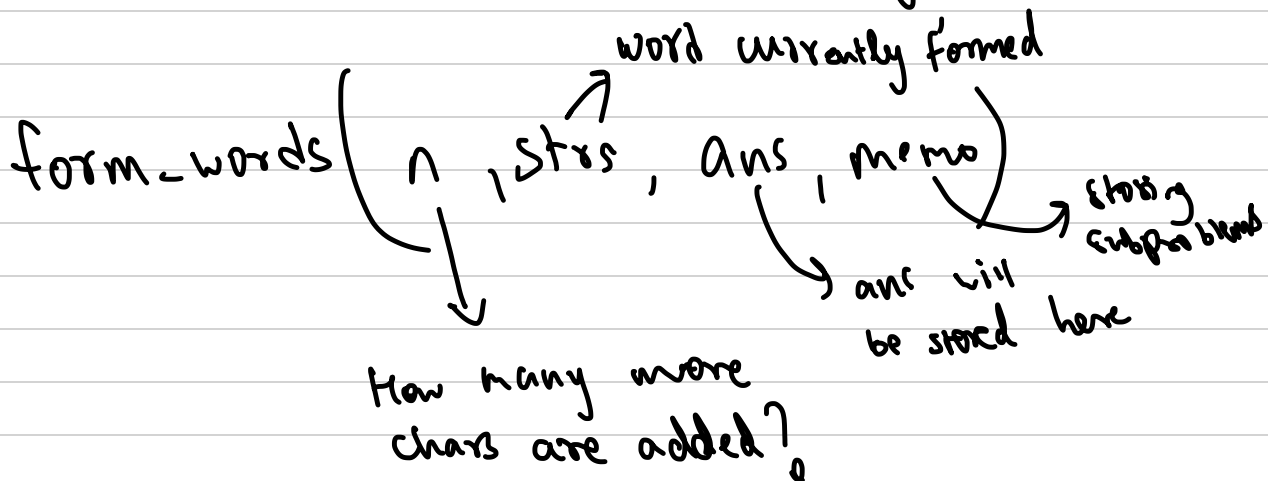 word currently formed
form_words( n , strs , ans , memo )
storing
subproblems
ans will
be stored here
How many more
chars are added?